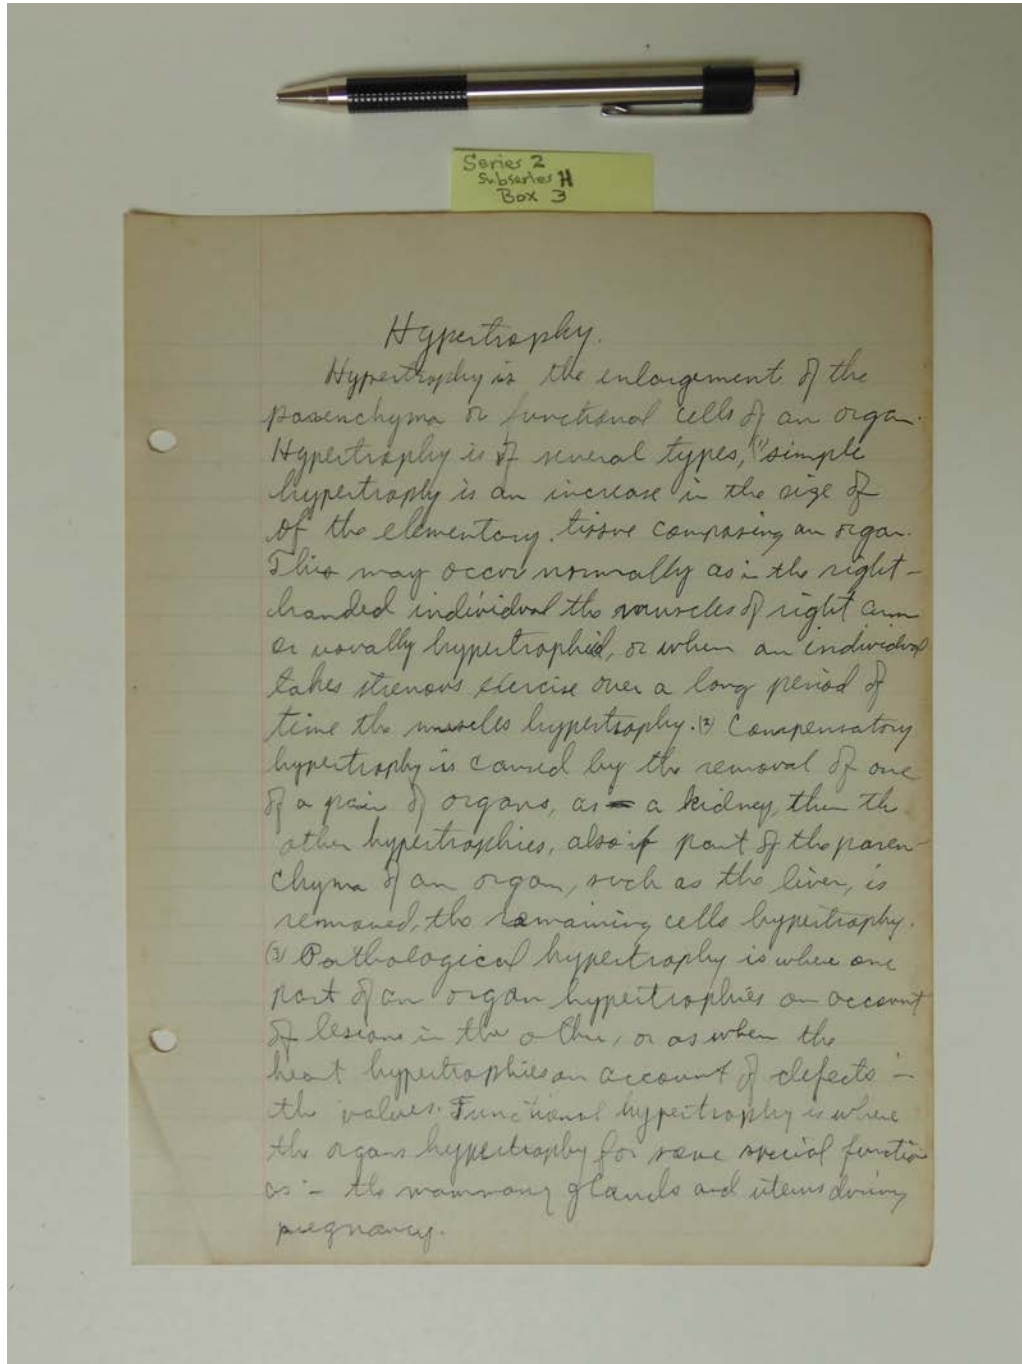 Series 2
Subseries H
Box 3
Hypertrophy.
Hypertrophy is the enlargement of the
parenchyma or functional cells of an organ.
Hypertrophy is of several types, (1) simple
hypertrophy is an increase in the size of
of the elementary tissue composing an organ.
This may occur normally as in the right-
handed individual the muscles of right arm
or usually hypertrophied, or when an individual
takes strenous exercise over a long period of
time the muscles hypertrophy. (2) Compensatory
hypertrophy is caused by the removal of one
of a pair of organs, as a kidney, then the
other hypertrophies, also if part of the paren-
chyma of an organ, such as the liver, is
removed, the remaining cells hypertrophy.
(3) Pathological hypertrophy is where one
part of an organ hypertrophies on account
of lesions in the other, or as when the
heart hypertrophies on account of defects in
the valves. Functional hypertrophy is where
the organs hypertrophy for some special function
as in the mammary glands and uterus during
pregnancy.